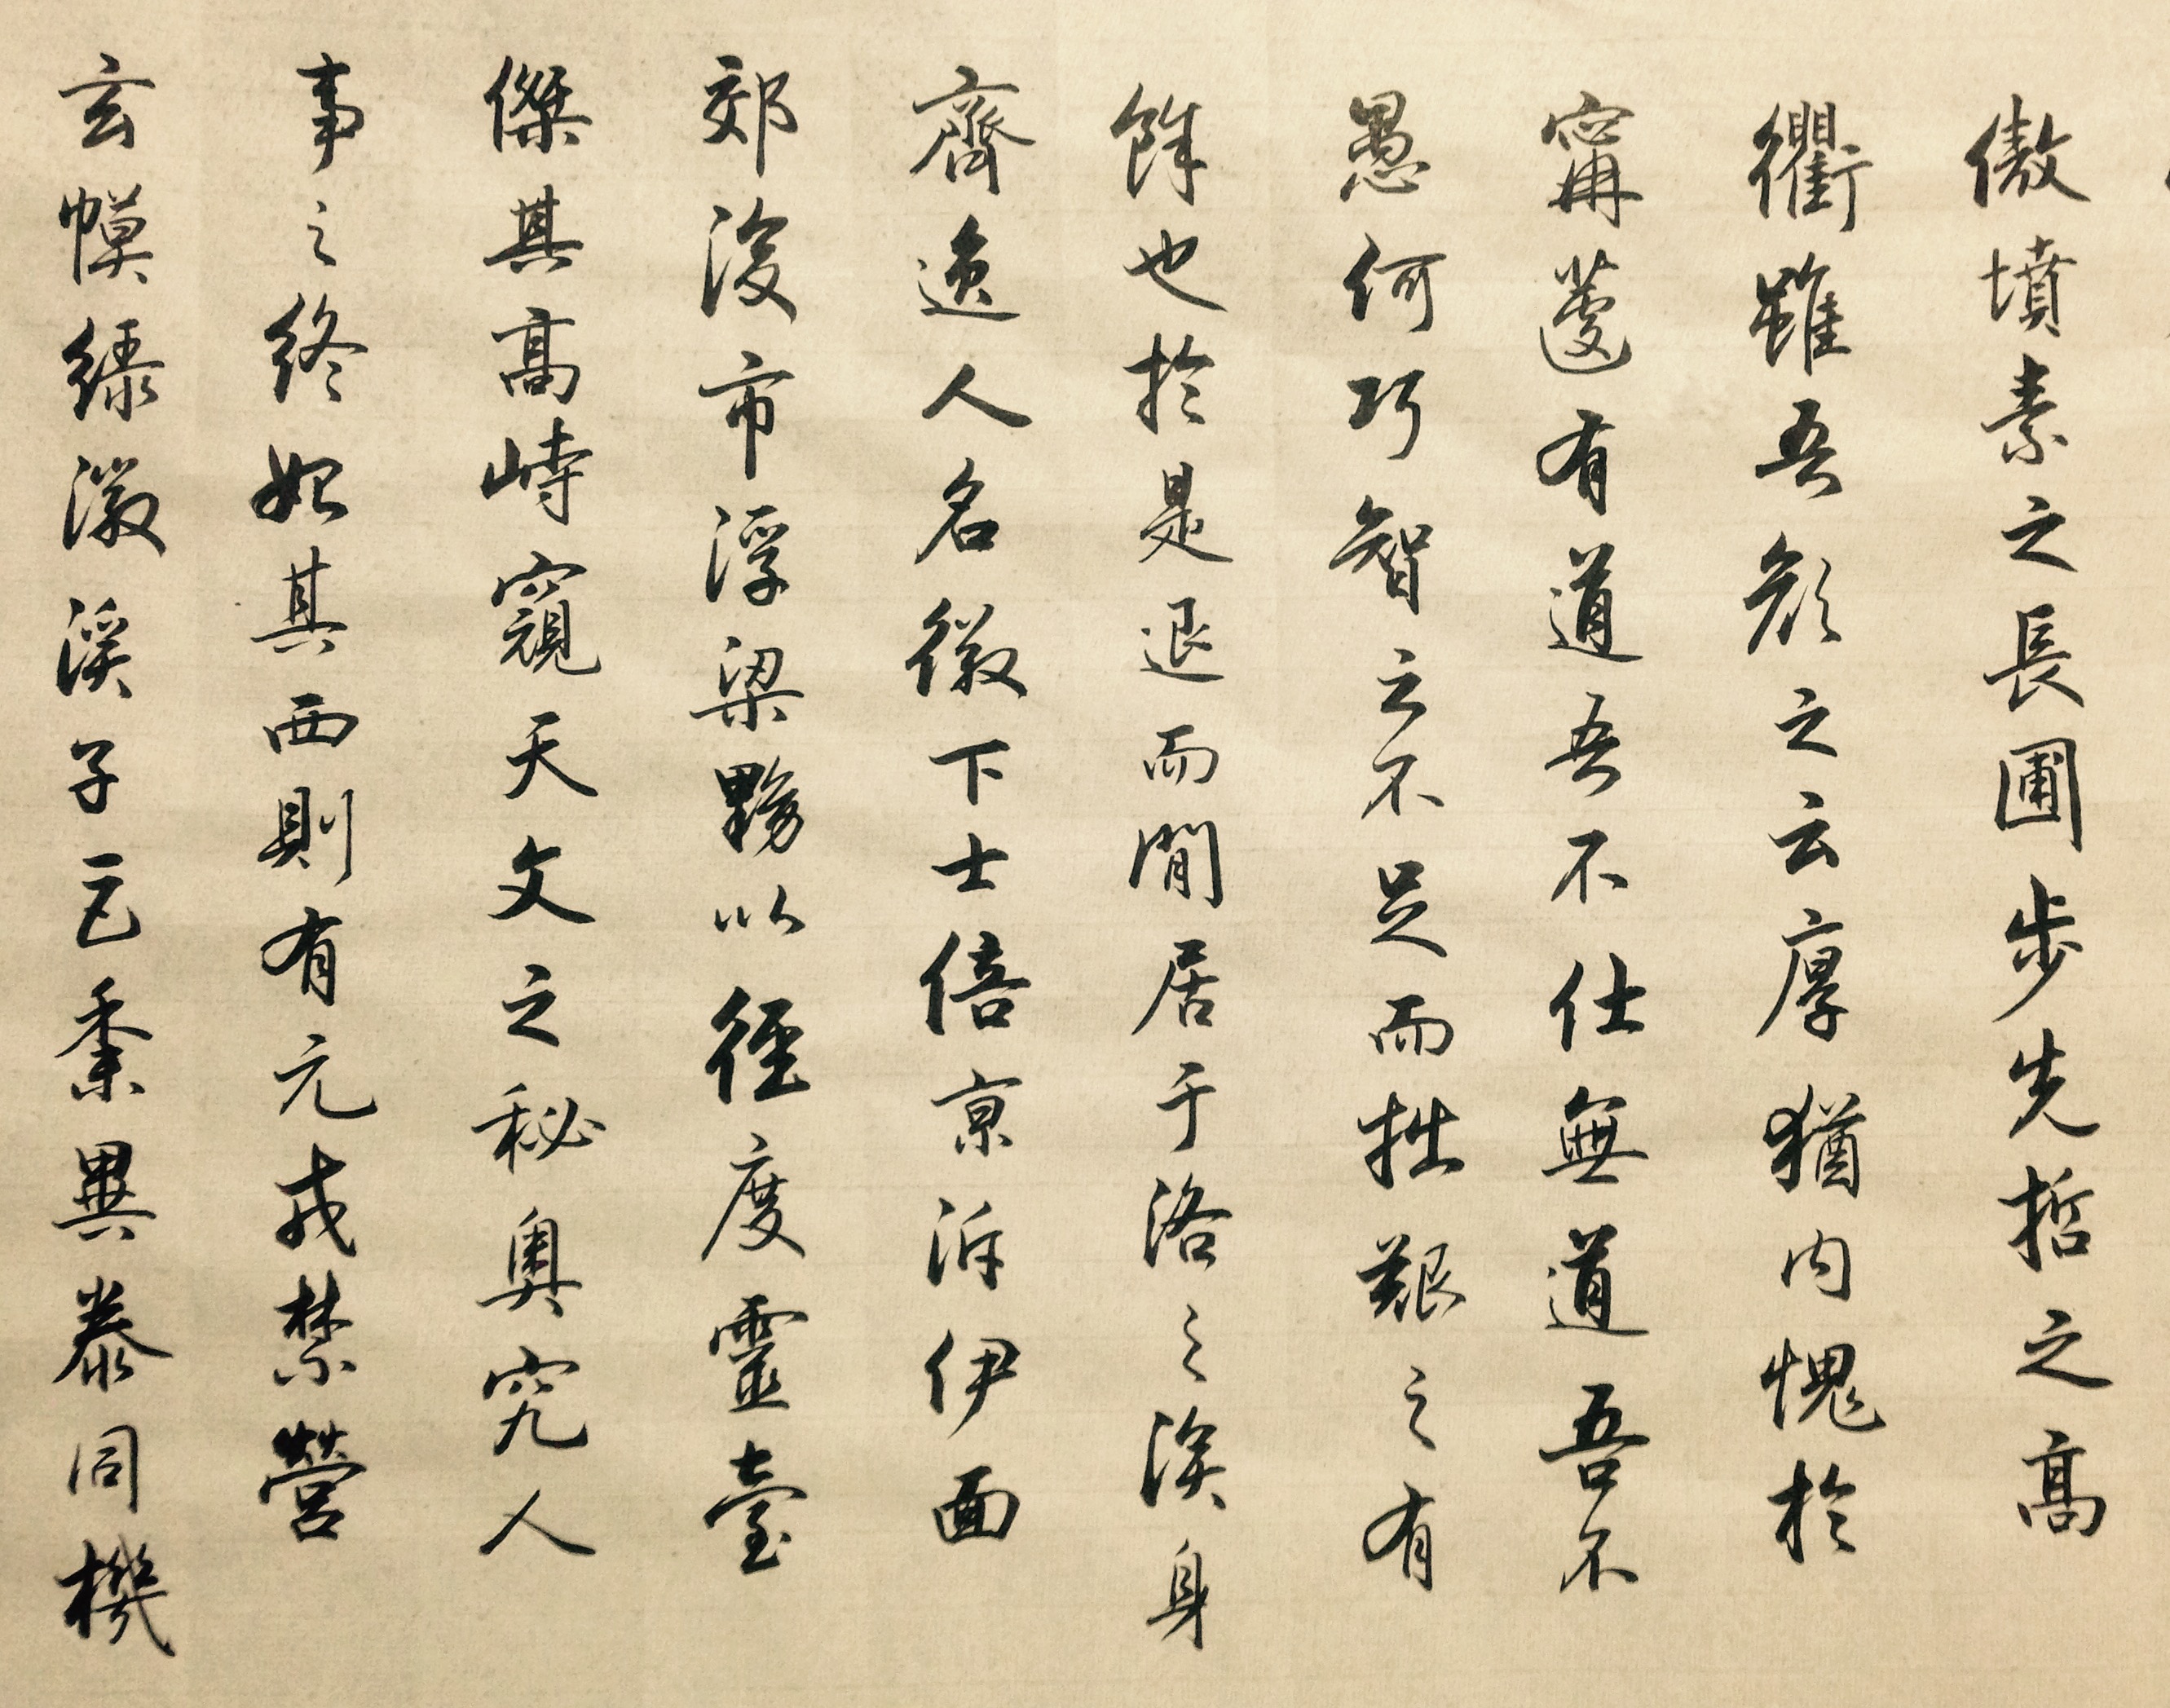 傲墳素之長圃步先哲之高
衢雖吾顏之云厚猶內愧於
甯蘧有道吾不仕無道吾不
愚何巧智之不足而拙艱之有
餘也於是退而閒居于洛之涘身
齊逸人名綴下士倍京泝伊面
郊後市浮梁黝以徑度靈臺
傑其高峙窺天文之秘奧究人
事之終始其西則有元戎禁營
玄幙綠徽溪子巨黍異絭同機